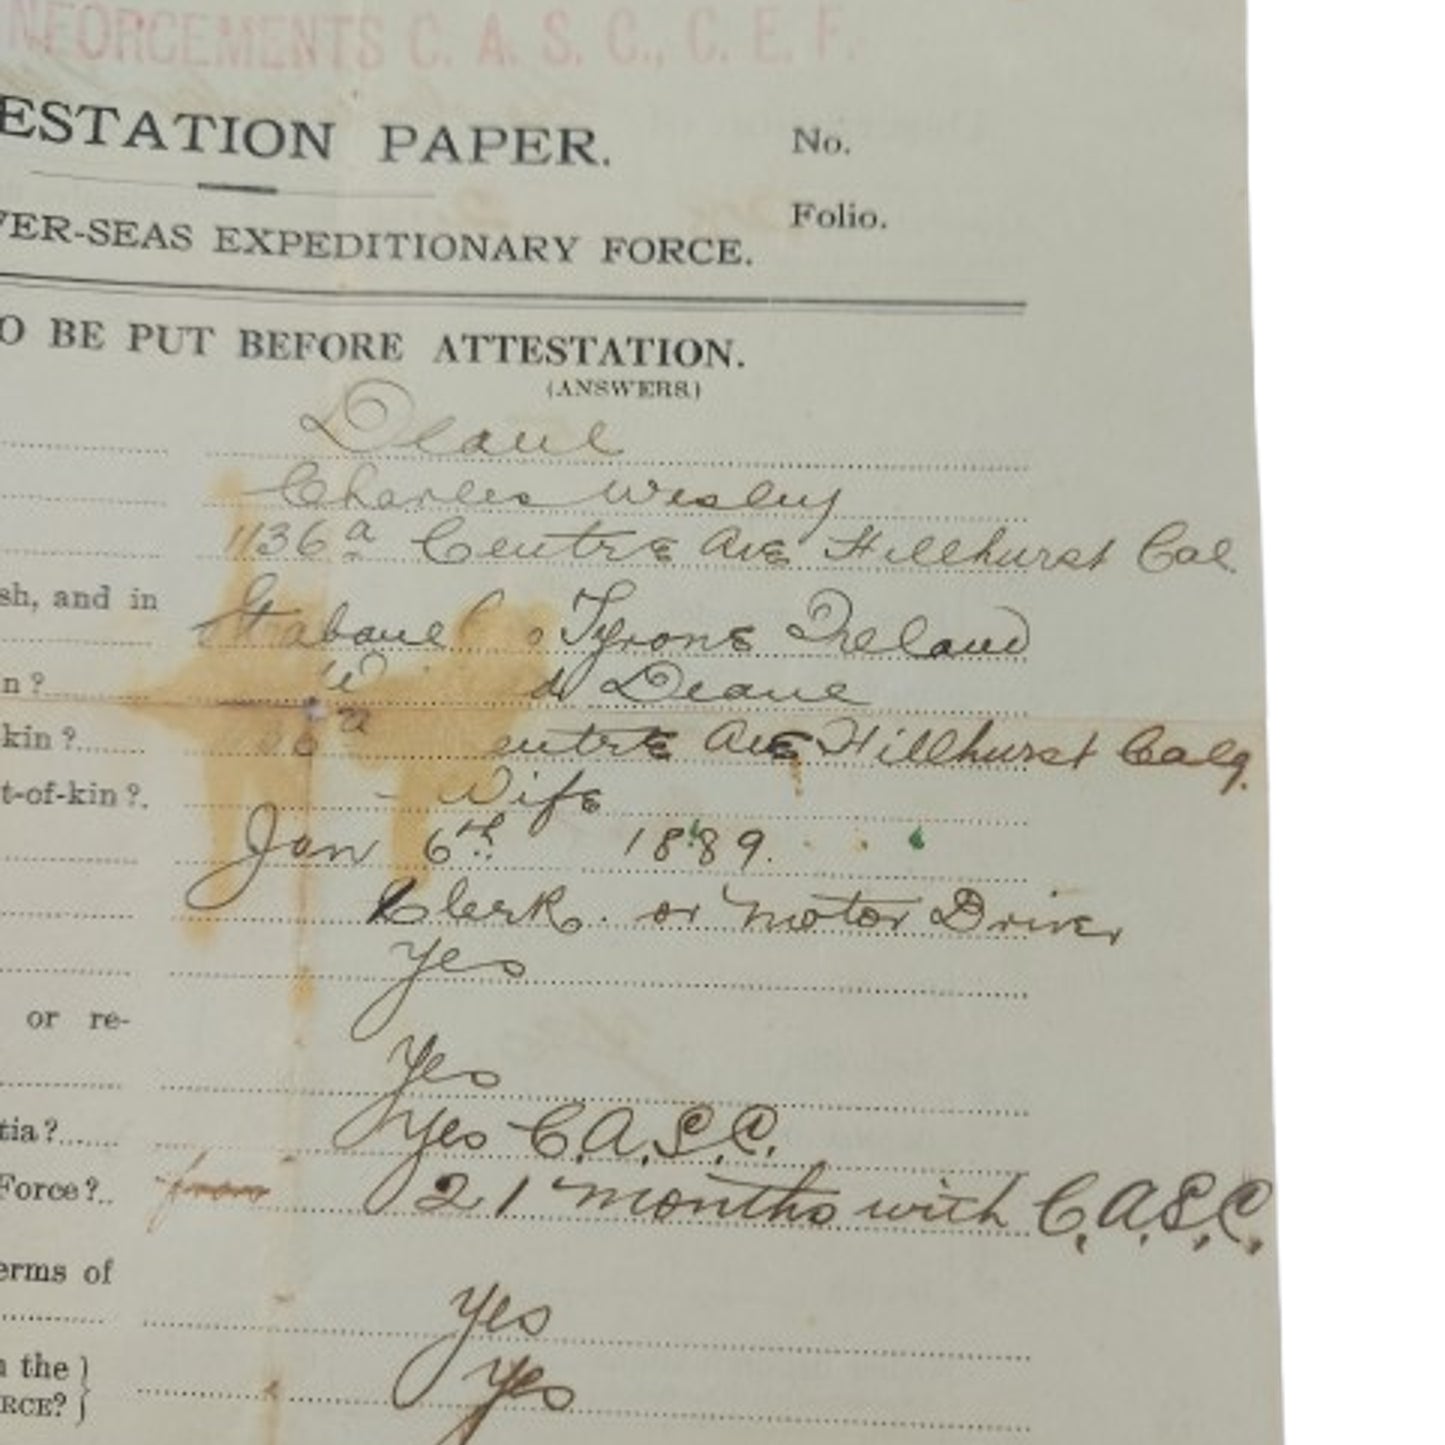 NFORCEMENTS C. A. S. C., C. E. F.
ESTATION PAPER.
No.
Folio.
VER-SEAS EXPEDITIONARY FORCE.
O BE PUT BEFORE ATTESTATION.
(ANSWERS)
Deane
Charles Wesley
1136a Centre Ave Hillhurst Cal.
sh, and in
Stabane Co Tyrone Ireland
n? d Deane
kin? 36a entre Ave Hillhurst Calg.
t-of-kin? Wife
Jan 6th 1889.
Clerk. or Motor Driver
Yes
or re-
Yes
tia? Yes C.A.S.C.
Force? from 21 months with C.A.S.C.
erms of
Yes
n the
RCE? } Yes